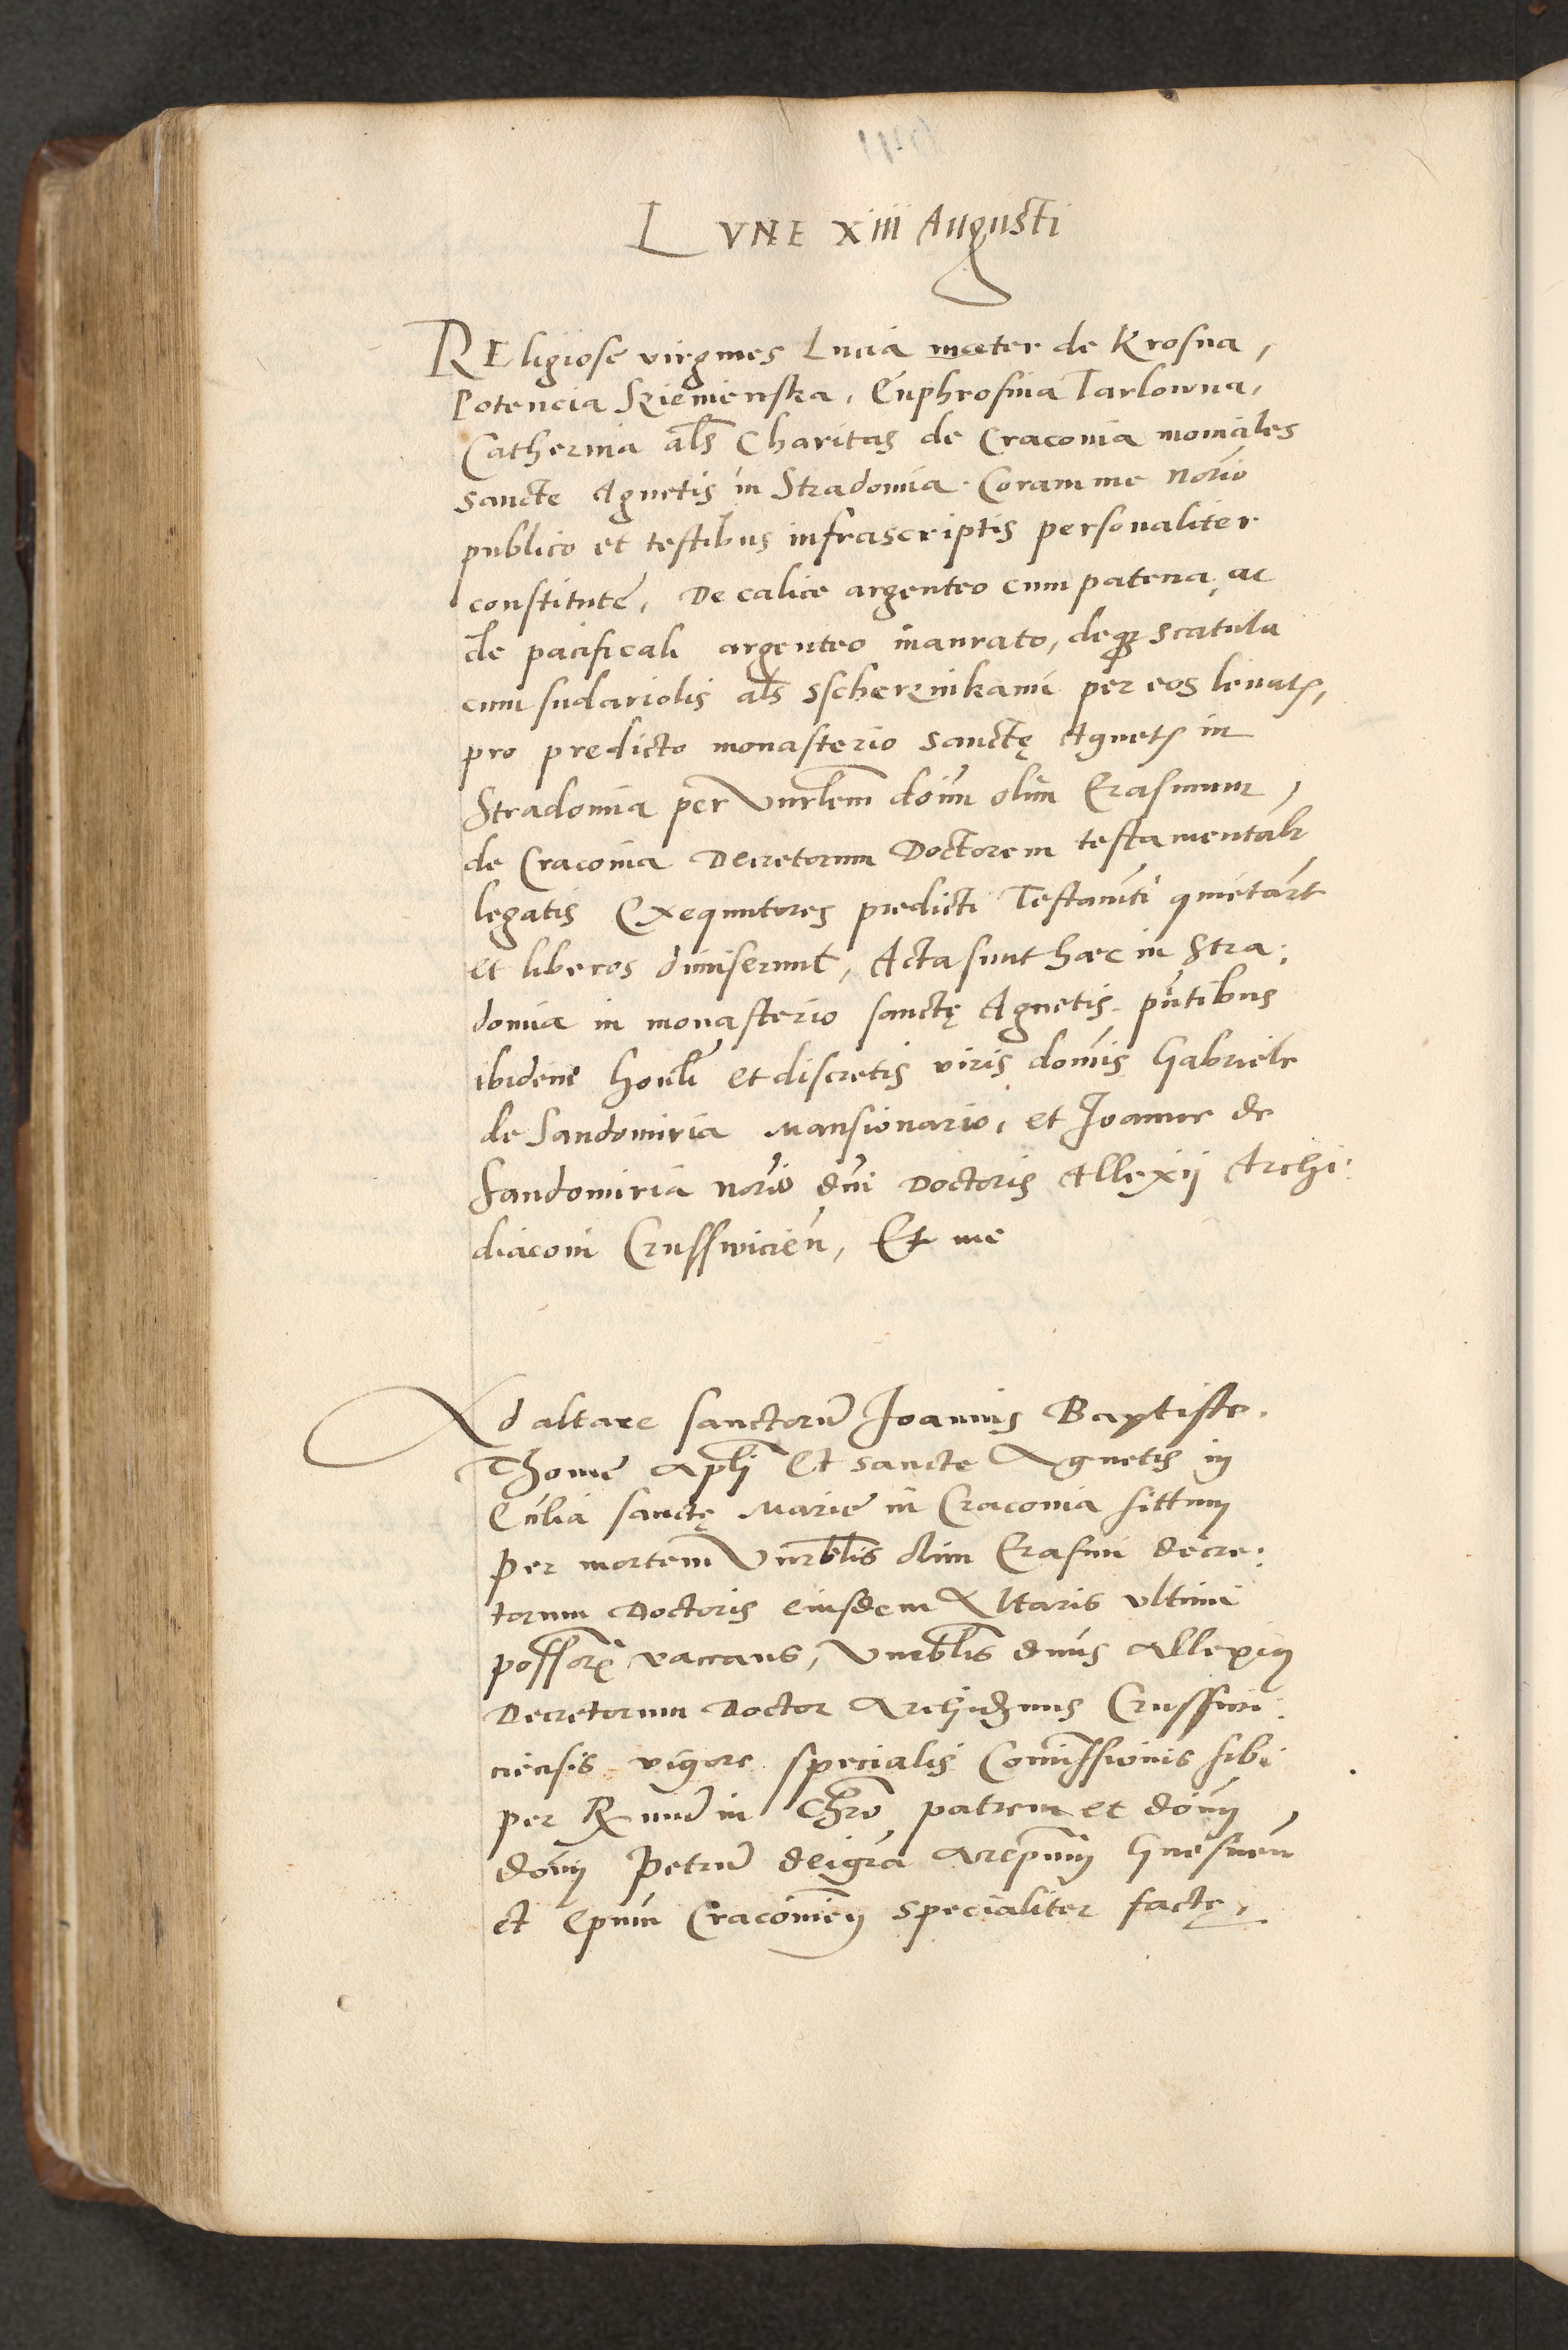 LVNE xiii Augusti
REligiose virgines Lucia mater de Krosna,
Potencia Sziemienska, Euphrosina Tarlowna,
Catherina als Charitas de Craconia moniales
sancte Agnetis in Stradomia Coram me norio
publico et testibus infrascriptis personaliter
constitute, De calice argenteo cum patena, ac
de pacificali argenteo inaurato, deq scatula
cum sudariolis als sscherzinkami per eos levatis,
pro predicto monasterio sanctę Agnetis in
Stradomia per Vnrlem dom olim Erasmum,
de Craconia Decretorum Doctorem testamentalr
legatis Exequutores predicti Testamti quietart
et liberos dimiserunt, Acta sunt haec in Stra:
domia in monasterio sanctę Agnetis pntibus
ibidem honbl et discretis viris domis Gabriele
de Sandomiria Mansionario, et Joanne de
Sandomiria norio dni Doctoris Allexij Archi:
diaconi Crusswicien, Et me
Ad altare sanctoru Joannis Baptiste,
Thome Apli Et sancte Agnetis in
Ecclia sanctę Marie in Craconia situm
per mortem Vnrblis olim Erasmi decre:
torum Doctoris eiusdem Altaris vltimi
possoris vaccans, Vnrblis dnus Allexius
Decretorum Doctor Archidnus Crusswi:
ciensis vigore specialis Comissionis sibi
per Rndum in Chro patrem et dom
dom Petru dei gra Arcepum Gnesnen
et Epum Cracovien specialiter factę,